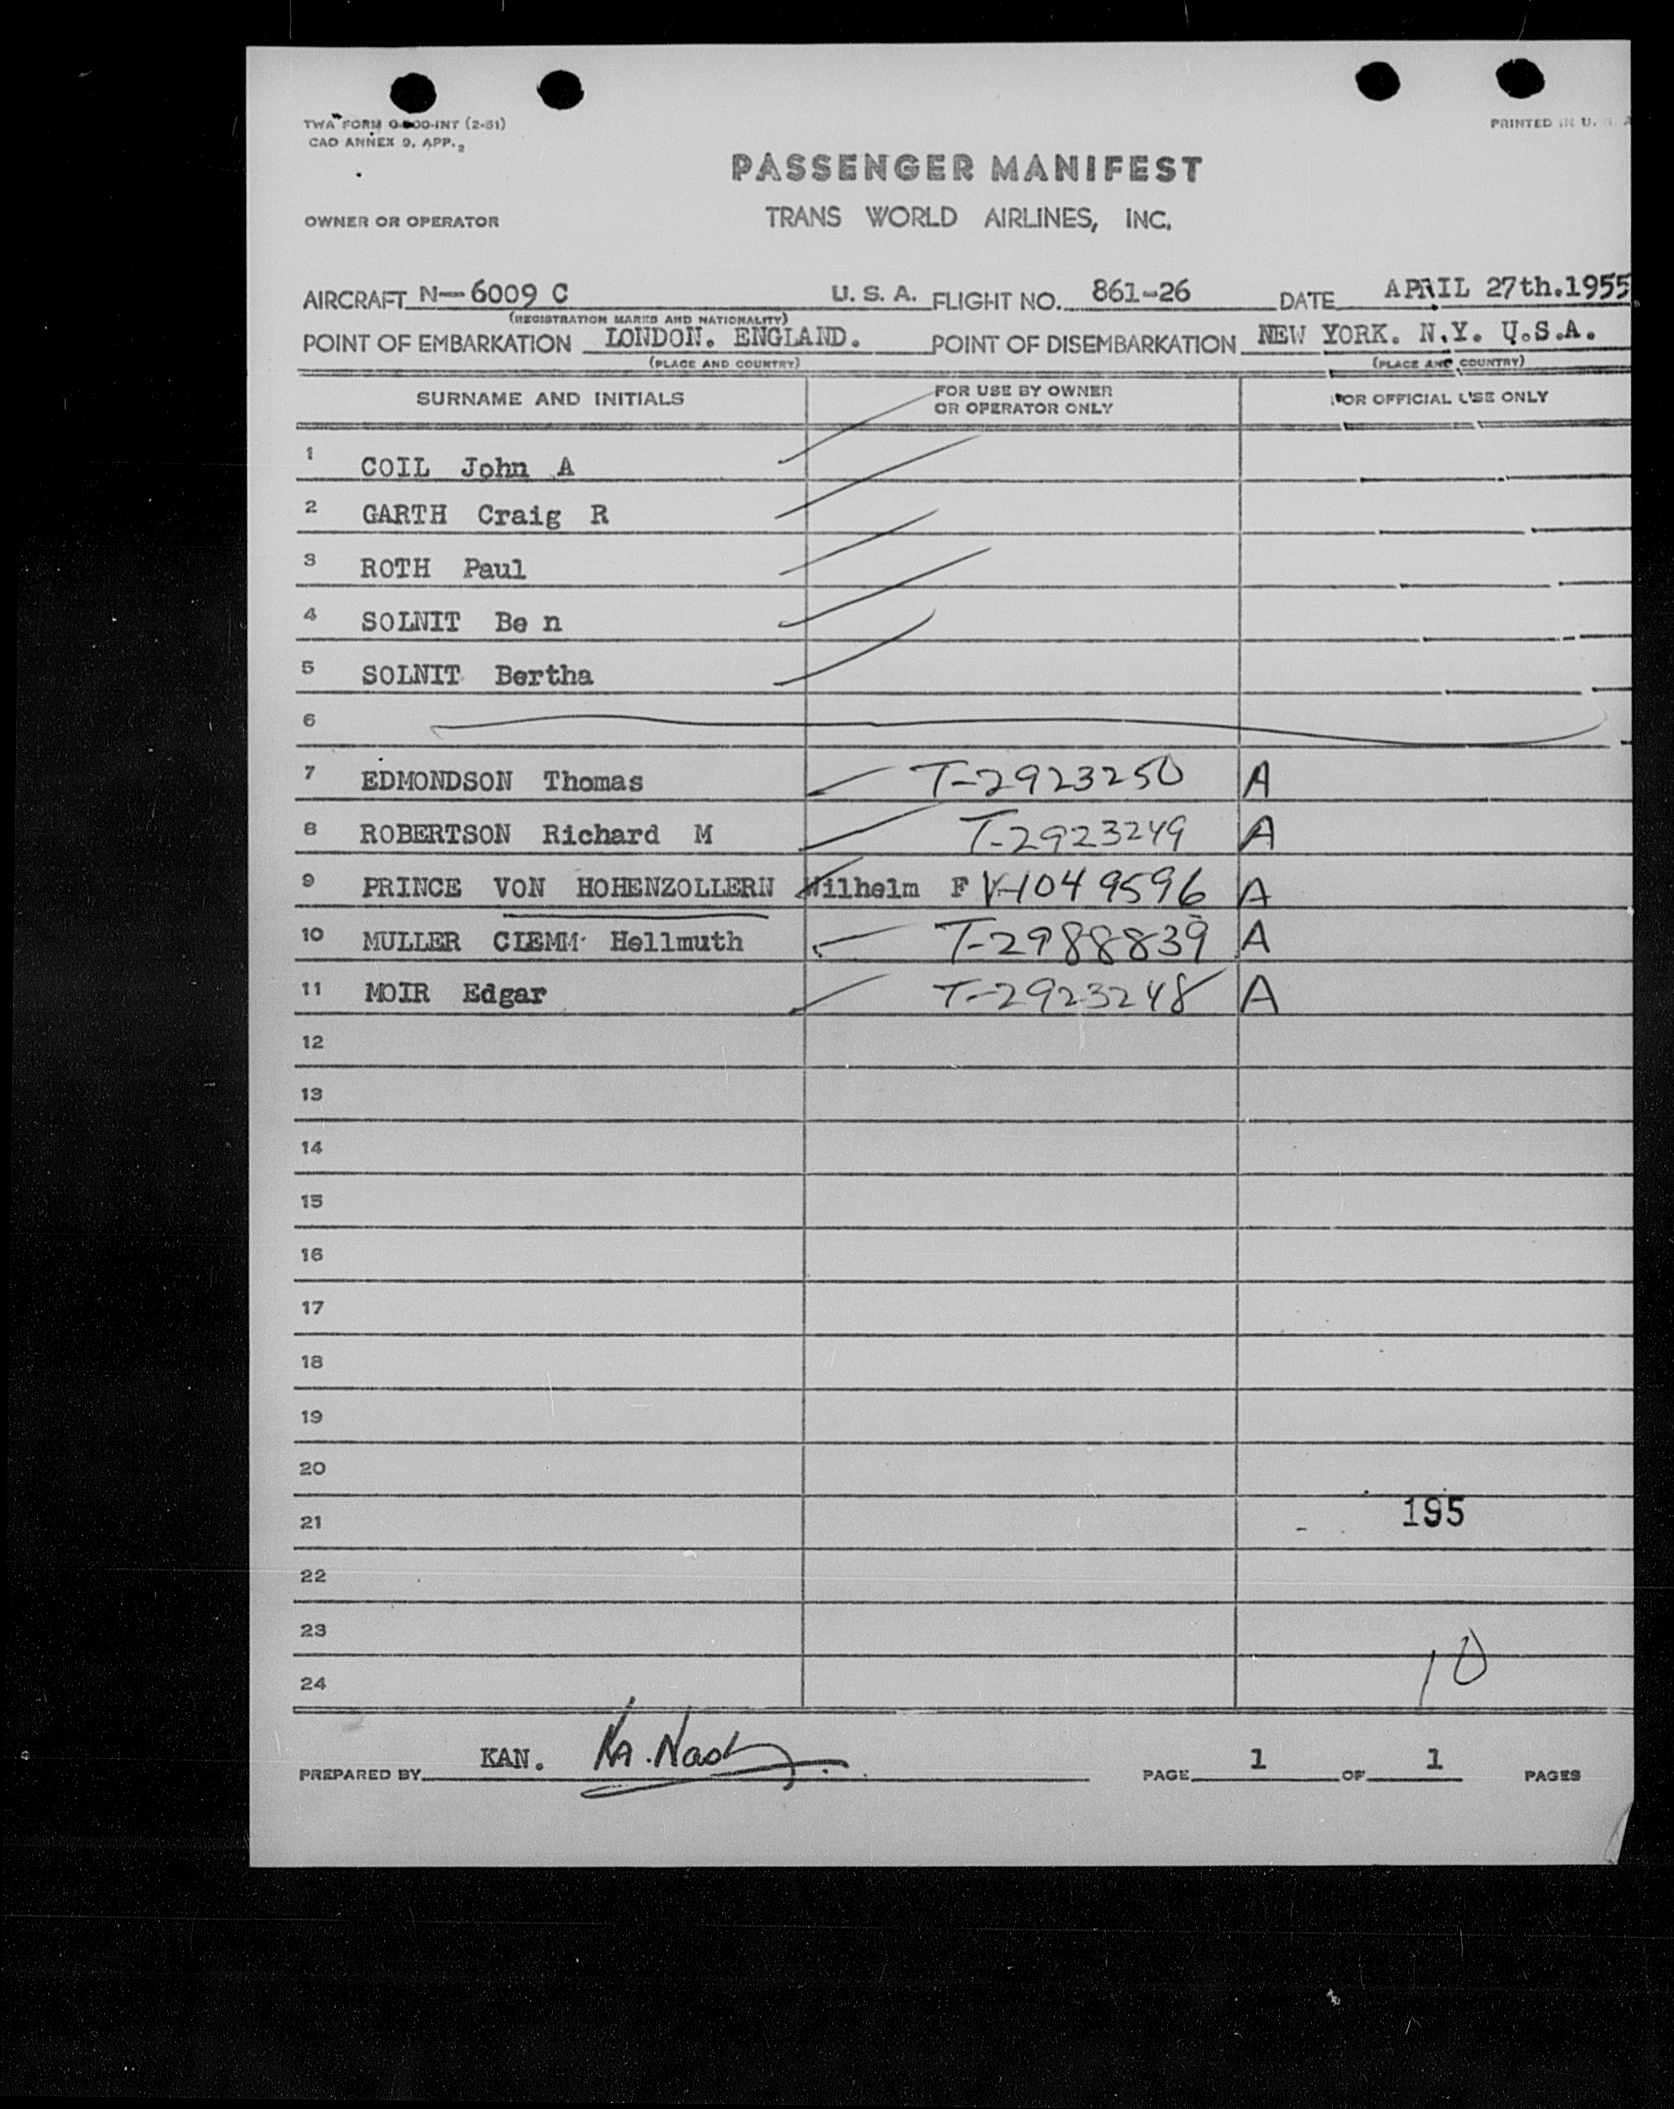 TWA FORM O-800-INT (2-51)
CAO ANNEX 9. APP. 2
PRINTED IN U. S. A
PASSENGER MANIFEST
OWNER OR OPERATOR TRANS WORLD AIRLINES, INC.
AIRCRAFT N-6009 C U. S. A. FLIGHT NO. 861-26 DATE APRIL 27th.1955
(REGISTRATION MARKS AND NATIONALITY)
POINT OF EMBARKATION LONDON. ENGLAND. POINT OF DISEMBARKATION NEW YORK. N.Y. U.S.A.
(PLACE AND COUNTRY) (PLACE AND COUNTRY)
SURNAME AND INITIALS FOR USE BY OWNER OR OPERATOR ONLY FOR OFFICIAL USE ONLY
1 COIL John A
2 GARTH Craig R
3 ROTH Paul
4 SOLNIT Be n
5 SOLNIT Bertha
6
7 EDMONDSON Thomas T-2923250 A
8 ROBERTSON Richard M T-2923249 A
9 PRINCE VON HOHENZOLLERN Wilhelm F V-1049596 A
10 MULLER CLEMM Hellmuth T-2988839 A
11 MOIR Edgar T-2923248 A
12
13
14
15
16
17
18
19
20
21 195
22
23
24 10
PREPARED BY KAN. KA. Nash PAGE 1 OF 1 PAGES